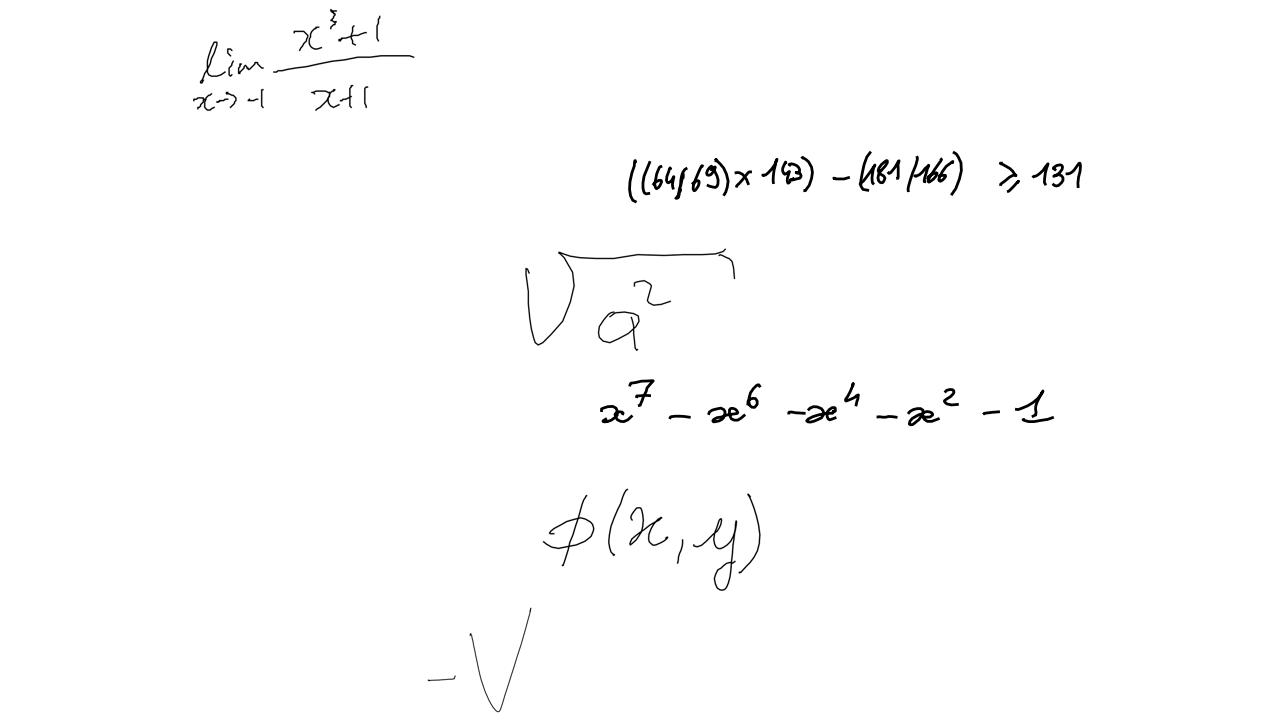 \lim_{x \to -1} \frac{x^3+1}{x+1}
((64/69) × 143) − (181/166) ⩾ 131
\sqrt{a^2}
x^7 − x^6 − x^4 − x^2 − 1
ϕ(x, y)
− V